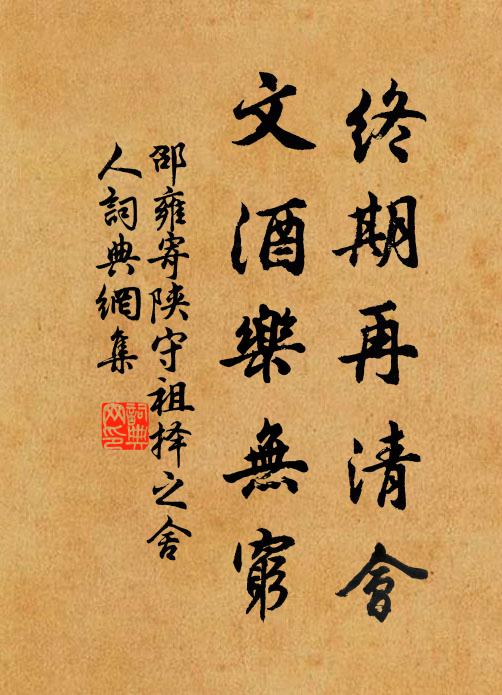 終期再清會
文酒樂無窮
邵雍寄陕守祖择之舍
人詞典網集
詞典网印